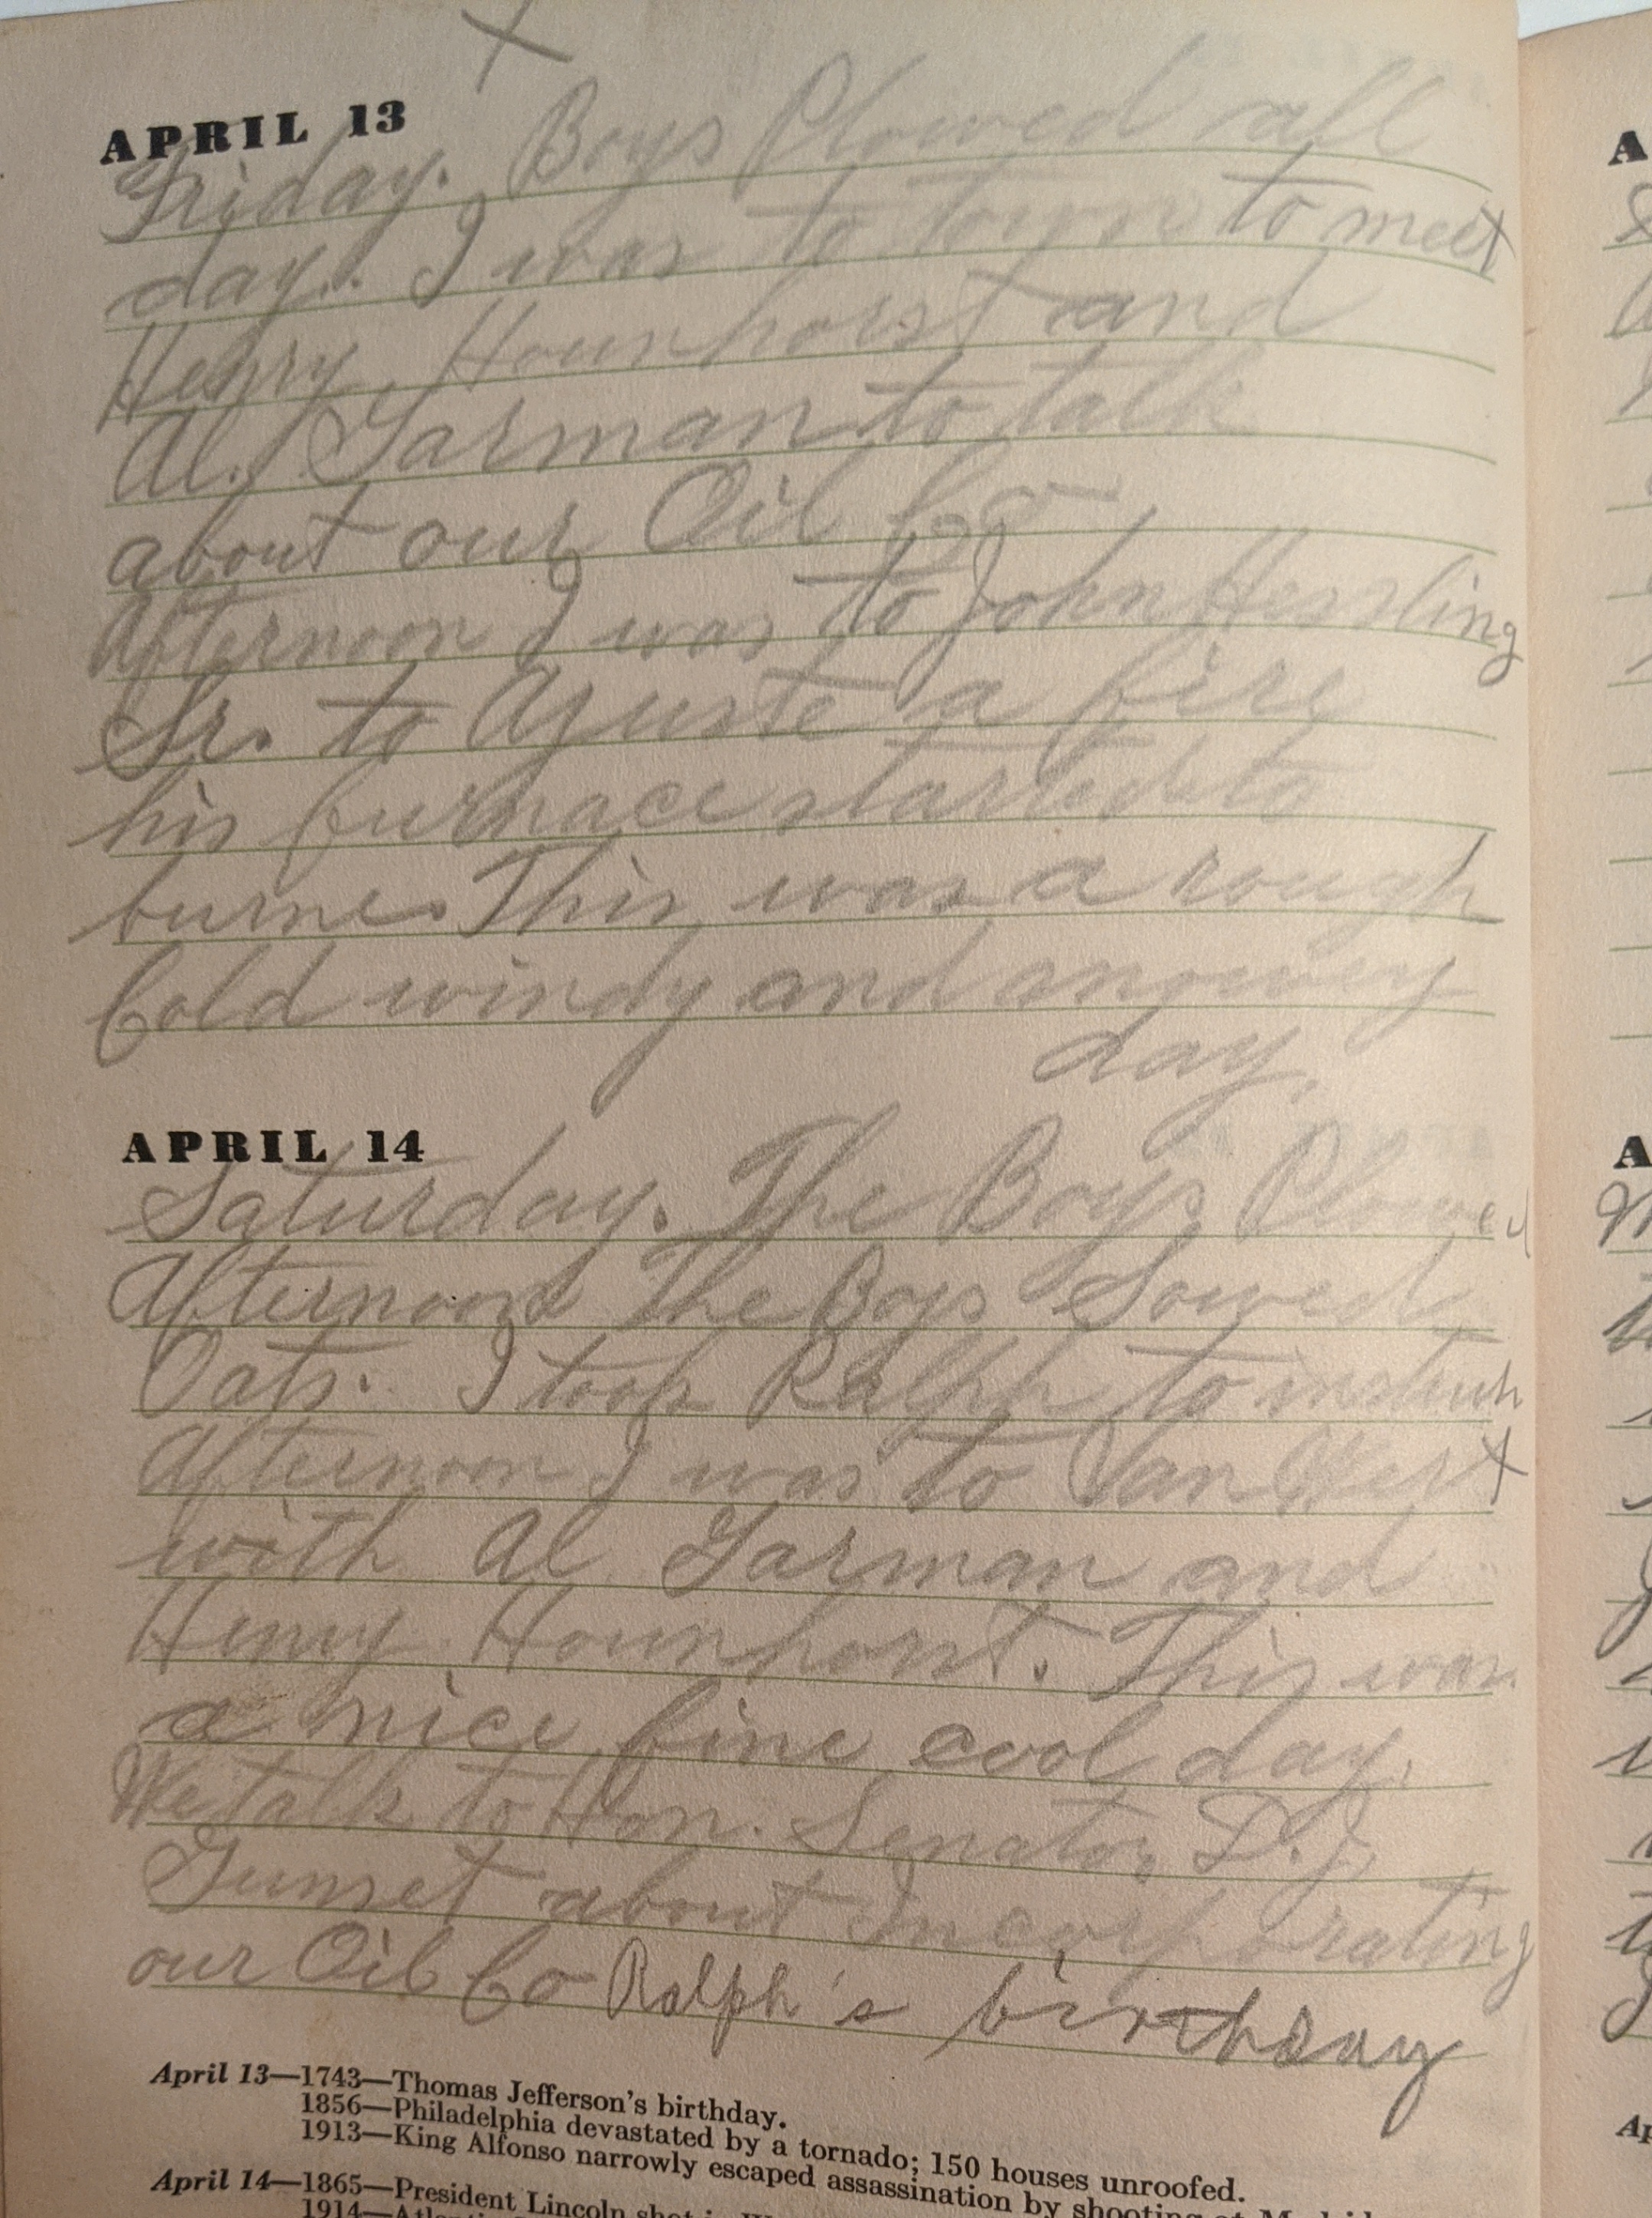 APRIL 13
Friday. Boys Plowed all
day. I was to town to meet
Henry Hounhorst and
Al. Garman to talk
about our Oil Co
Afternoon I was to John Hessling
Sr. to Ajuste a fire
his furnace started to
burne. This was a rough
Cold windy and snowey
day.
APRIL 14
Saturday. The Boys Plowed
Afternoon The Boys Sowed
Oats. I took Ralph to
Afternoon I was to Van Wert
with Al Garman and
Henry Hounhorst. This was
a nice fine cool day.
We talk to Hon. Senator D. J.
Gunset about Incorporating
our Oil Co Ralph's birthday
April 13—1743—Thomas Jefferson's birthday.
1856—Philadelphia devastated by a tornado; 150 houses unroofed.
1913—King Alfonso narrowly escaped assassination by shooting at
April 14—1865—President Lincoln shot
1914—